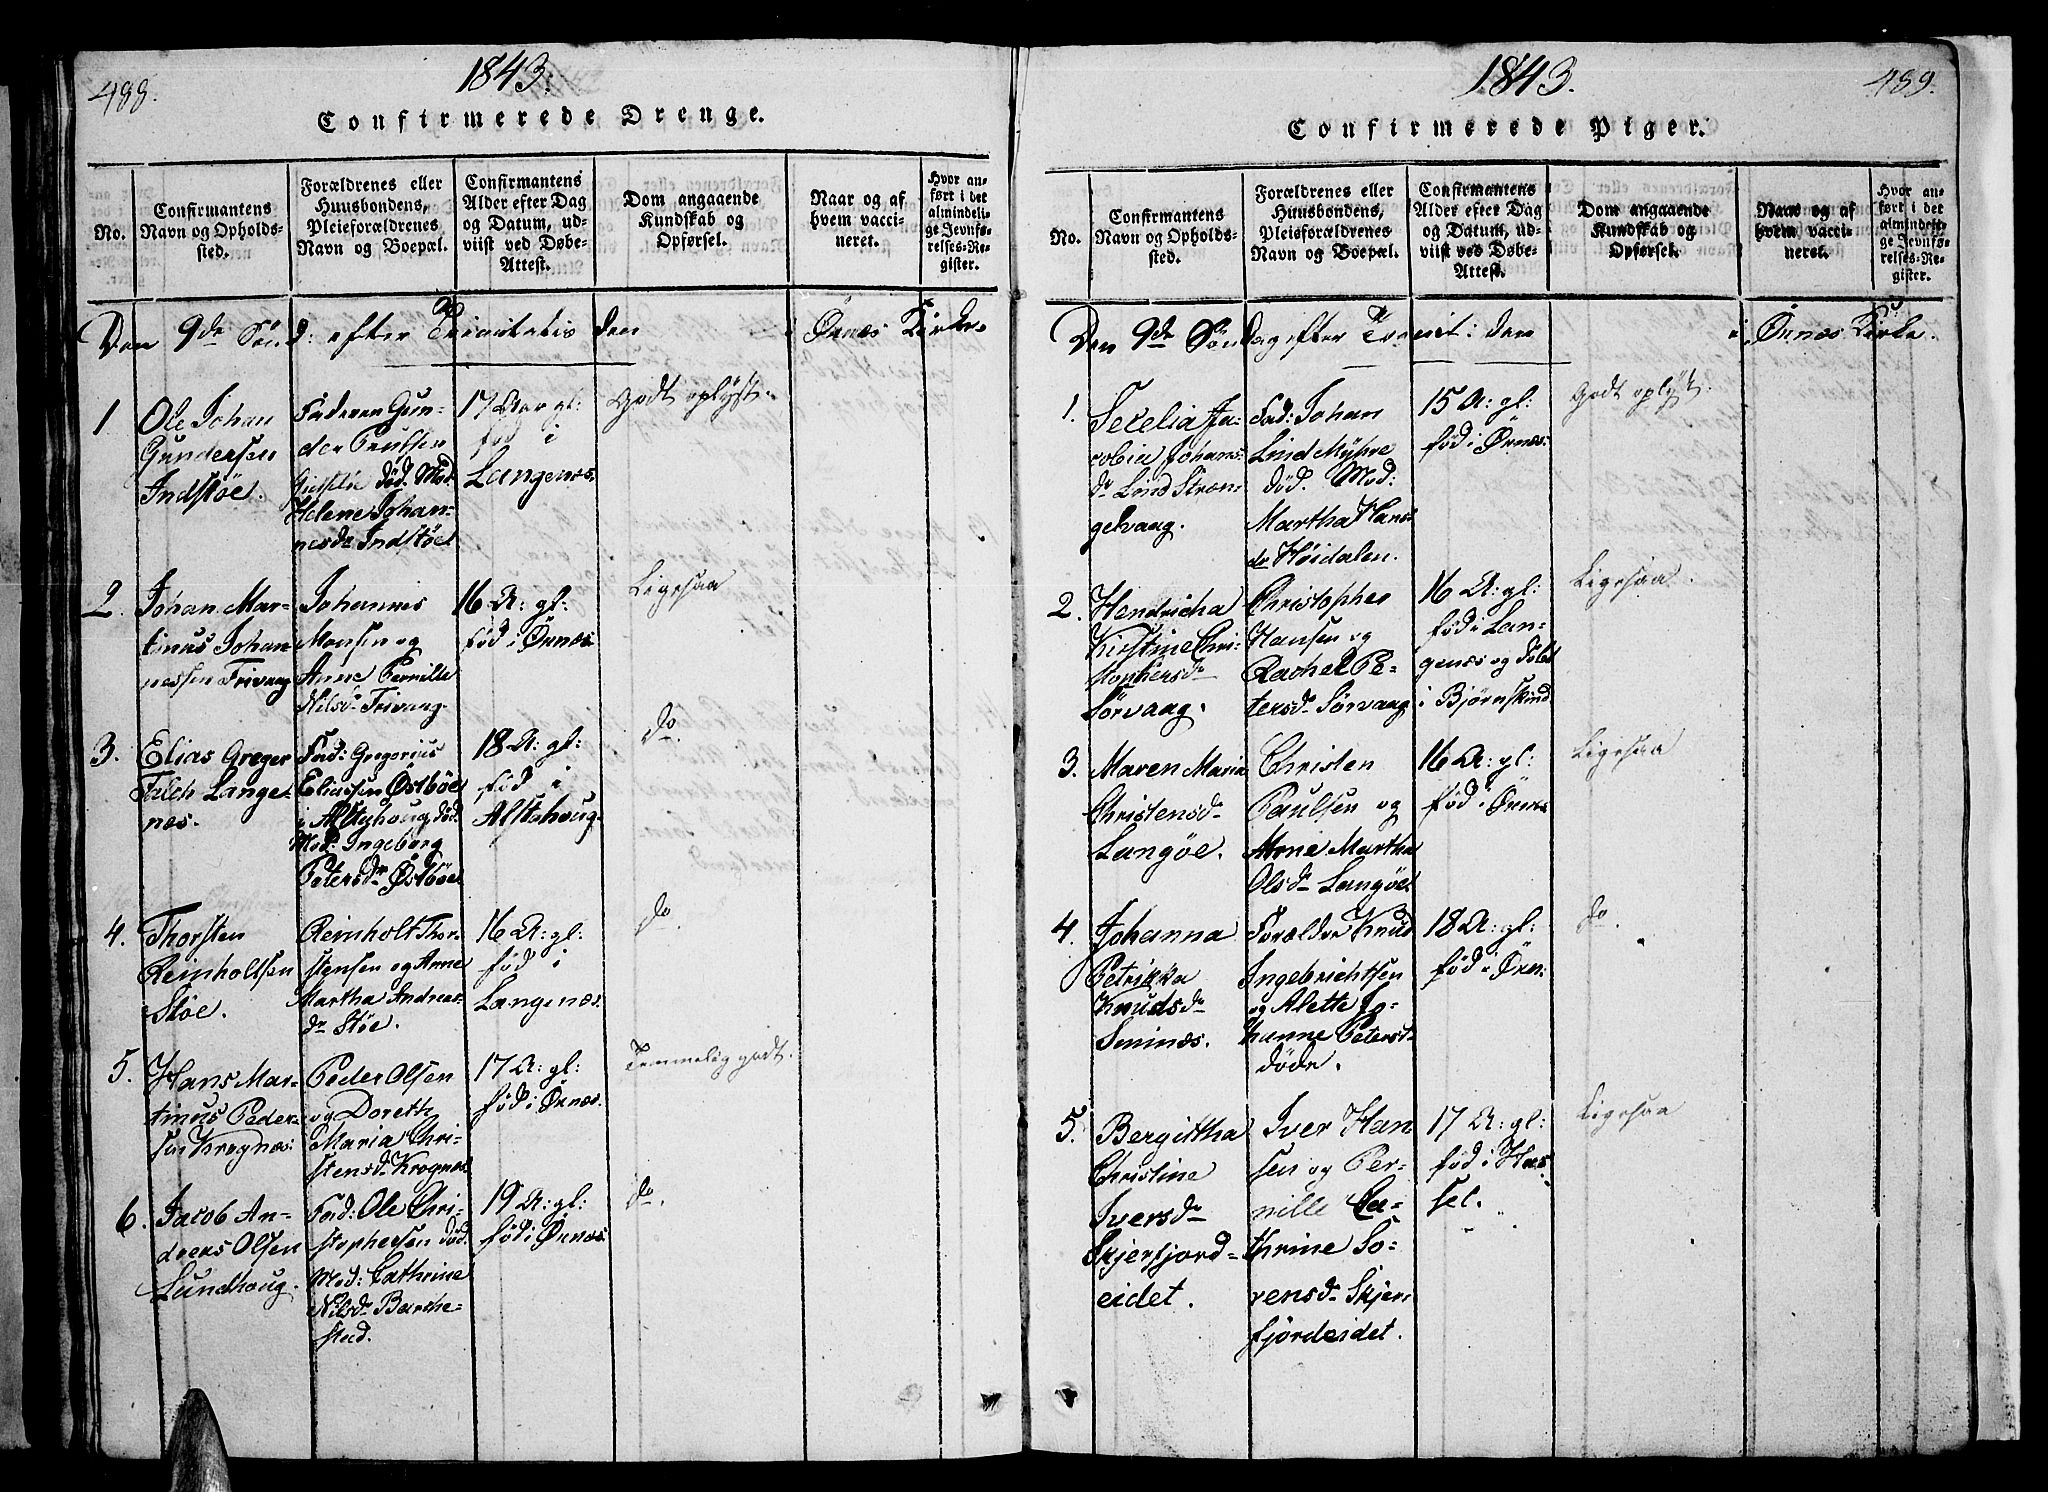 488.
1843.
Confirmerede Drenge.
No.
Confirmantens
Navn og Opholds-
sted.
Forældrenes eller
Huusbondens,
Pleieforældrenes
Navn og Boepæl.
Confirmantens
Alder efter Dag
og Datum, ud-
viist ved Døbe-
Attest.
Dom angaaende
Kundskab og
Opførsel.
Naar og af
hvem vacci-
neret.
Hvor an-
ført i det
almindeli-
ge Jevnfø-
relses-Re-
gister.
Den 9de Sønd: efter Trinitatis den i Ørnæs Kirke.
1
Ole Johan
Gundersen
Indstøe.
Faderen Gun-
der Paulsen
død. Mod:
Helene Johan-
nesdr Indstøe
17 Aar gl:
fød i
Langenæs.
Godt oplyst.
2.
Johan Mar-
tinus Johan-
nessen Trivaag
Johannes
Monsen og
Anne Pernille
Nilsdr Trivaag.
16 A: gl:
fød i Ørnæs
Ligesaa
3.
Elias Greger
Falch Lange-
næs.
Fad: Gregorius
Eliassen Østbøe
i Alstahoug død.
Mod: Ingeborg
Petersdr Østbøe
18 A: gl:
fød i
Alstahoug.
do.
4.
Thorsten
Reinholtsen
Støe.
Reinholt Thor-
stensen og Anne
Martha Andreas-
dr Støe.
16 A: gl:
fød i
Langenæs.
do.
5.
Hans Mar-
tinus Peder-
sen Krognæs.
Peder Olsen
og Doreth
Maria Chri-
stensdr Krognæs.
17 A: gl:
fød i Ørnæs.
Temmelig godt.
6.
Jacob An-
dreas Olsen
Lundhoug.
Fad: Ole Chri-
stophersen død.
Mod: Cathrine
Nilsdr Barthe-
stad.
19 A: gl:
fød i Ørnæs.
do.
1843.
489.
Confirmerede Piger.
No.
Confirmantens
Navn og Opholds-
sted.
Forældrenes eller
Huusbondens,
Pleieforældrenes
Navn og Boepæl.
Confirmantens
Alder efter Dag
og Datum, ud-
viist ved Døbe-
Attest.
Dom angaaende
Kundskab og
Opførsel.
Naar og af
hvem vacci-
neret.
Hvor an-
ført i det
almindeli-
ge Jevnfø-
relses-Re-
gister.
Den 9de Søndag efter Trenit: den i Ørnæs Kirke.
1.
Secelia Ja-
cobia Johans-
dr Lind Stran-
gelvaag.
Fad: Johan
Lind Myhre
død. Mod:
Martha Hans
dr Høidalen.
15 A: gl:
fød i Ørnæs:
Godt oplyst.
2.
Hendricha
Kirstine Chri-
stophersdr
Sørvaag.
Christopher
Hansen og
Rachel Pe-
tersdr Sørvaag.
16 A: gl:
fød i Lan-
genæs og døbt
i Bjørnskind
Ligesaa.
3.
Maren Maria
Christensdr
Langøe.
Christen
Paulsen og
Anne Martha
Olsdr Langøe
16 A: gl:
fød i Ørnæs
Ligesaa
4.
Johanna
Petrikka
Knudsdr
Sminæs.
Forældre Knud
Ingebrichtsen
og Alette Jo-
hanne Petersd
døde.
18 A: gl:
fød i Ørn:
do.
5.
Bergittha
Christine
Iversdr
Skjerfjord-
eidet.
Iver Han
sen og Per-
nille Ca-
thrine So-
rensdr Skjer
fjordeidet.
17 A: gl:
fød i Has-
sel.
Ligesaa